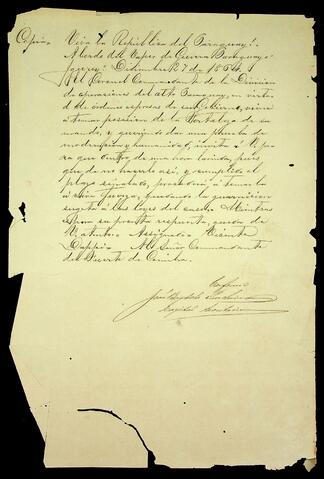 Copia = Viva la República del Paraguay!
A bordo del Vapor de Guerra Paraguayo
Diciembre 27 de 1864.
El Coronel Comandante de la Division
de operaciones del alto Paraguay, en virtud
de órdenes espresas de su Gobierno, viene
á tomar posesion de la Fortaleza de su
mando, y queriendo dar una prueba de
moderacion y humanidad, invita á V. pa
ra que dentro de una hora la rinda, pues
que de no hacerlo así, y cumplido el
plazo señalado, procederá á tomarla
á viva fuerza, quedando la guarnicion
sugeta á las leyes del caso = Mientras
espera su pronta respuesta, queda de
V. atento = Assignado = Vicente
Barrios = Al Señor Comandante
del Fuerte de Coimbra.
Conforme
Capitão